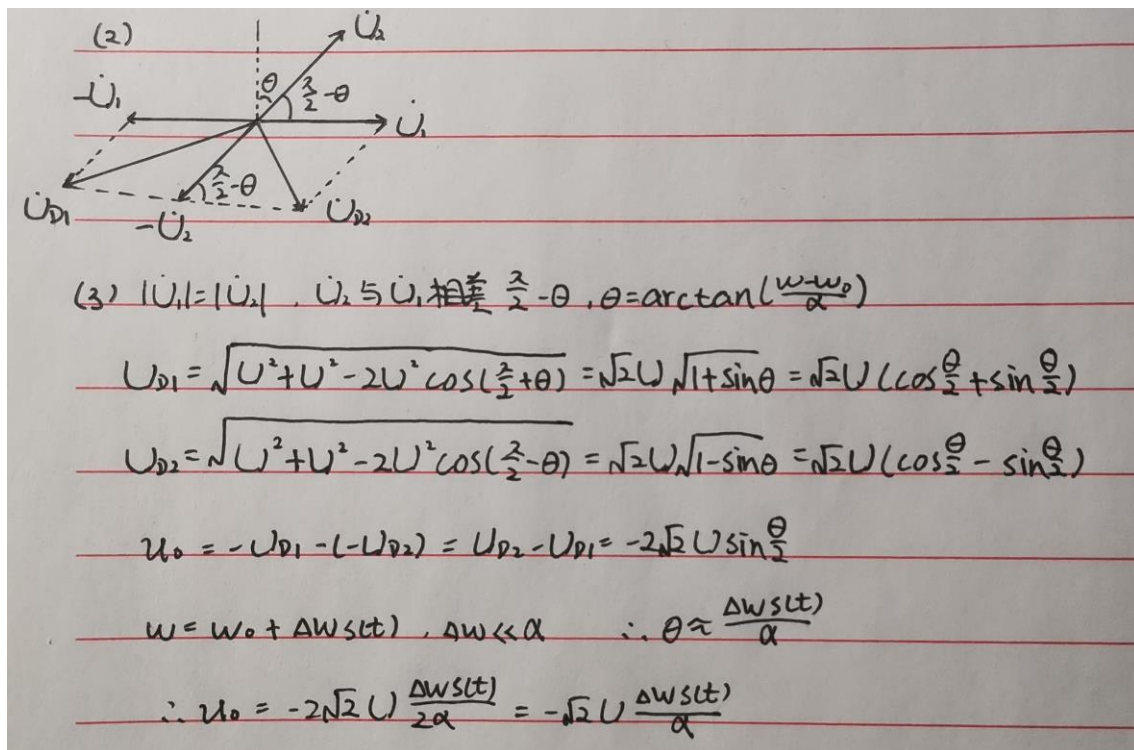 (2)
U̇₂
θ
π/2 - θ
-U̇₁
U̇₁
π/2 - θ
U̇_D1
-U̇₂
U̇_D2
(3) |U̇₁|=|U̇₂| , U̇₂与U̇₁相差 π/2 - θ , θ=arctan((w-w₀)/α)
U_D1 = √(U²+U²-2U²cos(π/2+θ)) = √2U√(1+sinθ) = √2U(cos θ/2 + sin θ/2)
U_D2 = √(U²+U²-2U²cos(π/2-θ)) = √2U√(1-sinθ) = √2U(cos θ/2 - sin θ/2)
u₀ = -U_D1-(-U_D2) = U_D2-U_D1 = -2√2U sin θ/2
w = w₀ + Δws(t) , Δw≪α ∴ θ ≈ Δws(t)/α
∴ u₀ = -2√2U Δws(t)/2α = -√2U Δws(t)/α